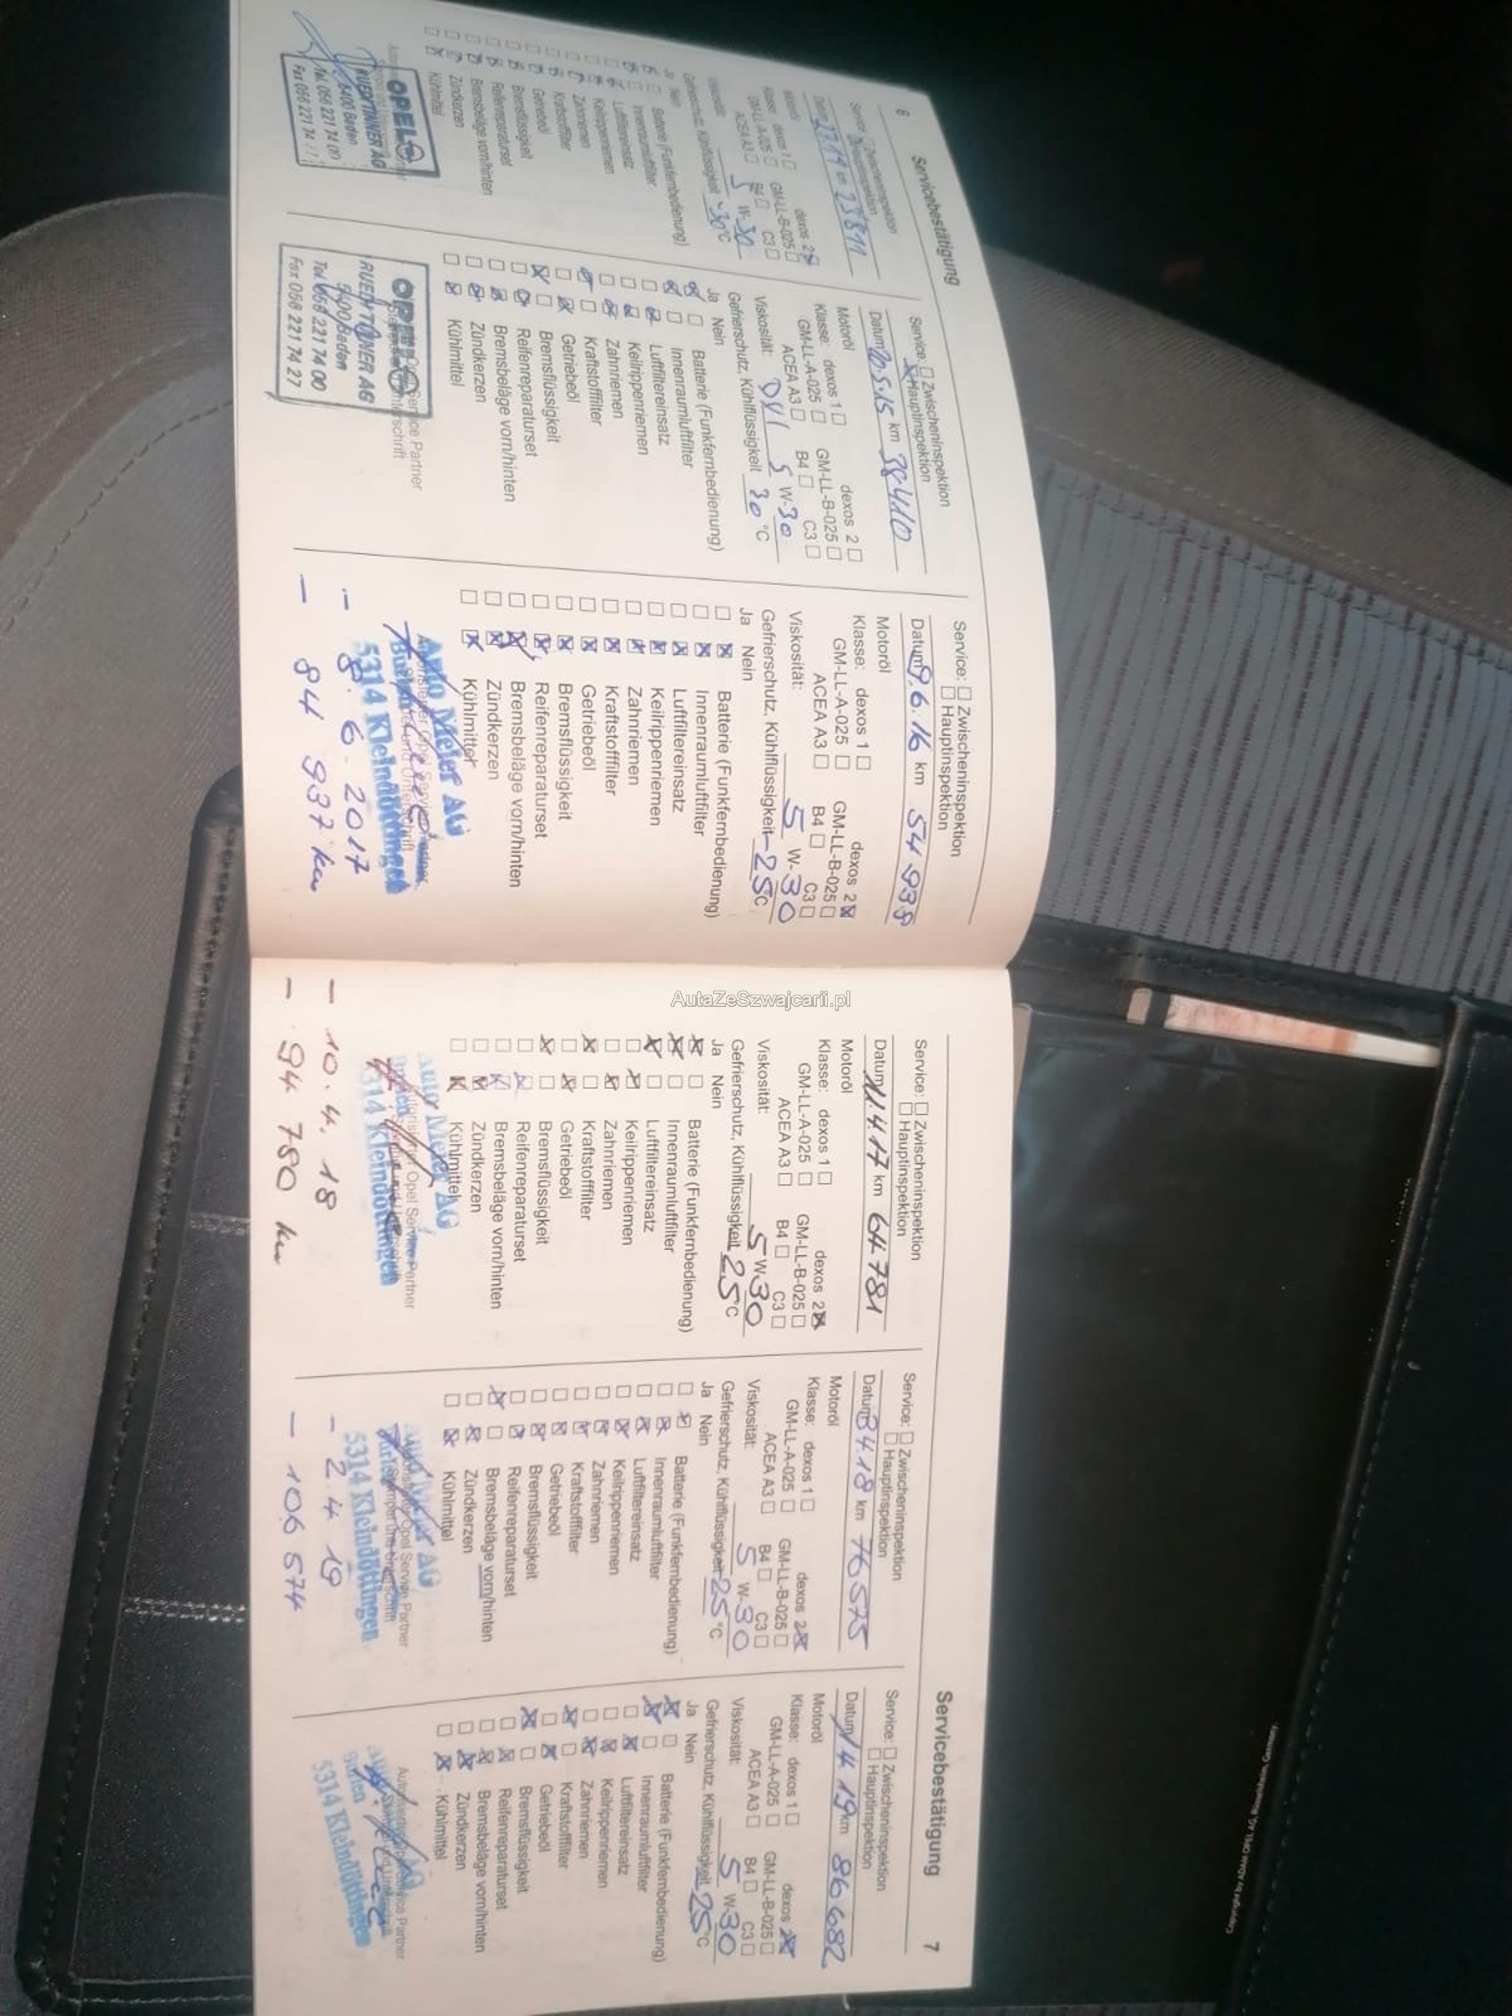 6
Servicebestätigung
Service
Zwischeninspektion
Hauptinspektion
km 23811
Motoröl
Klasse: dexos 1 dexos 2
GM-LL-A-025 GM-LL-B-025
ACEA A3 B4 C3
Viskosität: 5 W-30
Gefrierschutz, Kühlflüssigkeit -30°C
Ja Nein
Batterie (Funkfernbedienung)
Innenraumluftfilter
Luftfiltereinsatz
Keilrippenriemen
Zahnriemen
Kraftstofffilter
Getriebeöl
Bremsflüssigkeit
Reifenreparaturset
Bremsbeläge vorn/hinten
Zündkerzen
Kühlmittel
OPEL
RUEDI TINNER AG
5400 Baden
Tel. 056 221 74 00
Fax 056 221 74
Service: Zwischeninspektion
Hauptinspektion
Datum 20.5.15 km 38410
Motoröl
Klasse: dexos 1 dexos 2
GM-LL-A-025 GM-LL-B-025
ACEA A3 B4 C3
Viskosität: 5 W-30
Gefrierschutz, Kühlflüssigkeit 30 °C
Ja Nein
Batterie (Funkfernbedienung)
Innenraumluftfilter
Luftfiltereinsatz
Keilrippenriemen
Zahnriemen
Kraftstofffilter
Getriebeöl
Bremsflüssigkeit
Reifenreparaturset
Bremsbeläge vorn/hinten
Zündkerzen
Kühlmittel
Service Partner
OPEL
RUEDI TINNER AG
5400 Baden
Tel. 056 221 74 00
Fax 056 221 74 27
Service: Zwischeninspektion
Hauptinspektion
Datum 9.6.16 km 54 938
Motoröl
Klasse: dexos 1 dexos 2
GM-LL-A-025 GM-LL-B-025
ACEA A3 B4 C3
Viskosität: 5 W-30
Gefrierschutz, Kühlflüssigkeit -25°C
Ja Nein
Batterie (Funkfernbedienung)
Innenraumluftfilter
Luftfiltereinsatz
Keilrippenriemen
Zahnriemen
Kraftstofffilter
Getriebeöl
Bremsflüssigkeit
Reifenreparaturset
Bremsbeläge vorn/hinten
Zündkerzen
Kühlmittel
Auto Meier AG
5314 Kleindöttingen
- 8. 6. 2017
- 84 937 km
Service: Zwischeninspektion
Hauptinspektion
Datum 11.4.17 km 64 781
Motoröl
Klasse: dexos 1 dexos 2
GM-LL-A-025 GM-LL-B-025
ACEA A3 B4 C3
Viskosität: 5 W-30
Gefrierschutz, Kühlflüssigkeit 25°C
Ja Nein
Batterie (Funkfernbedienung)
Innenraumluftfilter
Luftfiltereinsatz
Keilrippenriemen
Zahnriemen
Kraftstofffilter
Getriebeöl
Bremsflüssigkeit
Reifenreparaturset
Bremsbeläge vorn/hinten
Zündkerzen
Kühlmittel
Opel Service Partner
Auto Meier AG
5314 Kleindöttingen
- 10. 4. 18
- 94 780 km
Service: Zwischeninspektion
Hauptinspektion
Datum 3.4.18 km 76 575
Motoröl
Klasse: dexos 1 dexos 2
GM-LL-A-025 GM-LL-B-025
ACEA A3 B4 C3
Viskosität: 5 W-30
Gefrierschutz, Kühlflüssigkeit -25°C
Ja Nein
Batterie (Funkfernbedienung)
Innenraumluftfilter
Luftfiltereinsatz
Keilrippenriemen
Zahnriemen
Kraftstofffilter
Getriebeöl
Bremsflüssigkeit
Reifenreparaturset
Bremsbeläge vorn/hinten
Zündkerzen
Kühlmittel
Opel Service Partner
5314 Kleindöttingen
- 2. 4 19
- 106 574
Servicebestätigung 7
Service: Zwischeninspektion
Hauptinspektion
Datum 1 4 19 km 86 682
Motoröl
Klasse: dexos 1 dexos 2
GM-LL-A-025 GM-LL-B-025
ACEA A3 B4 C3
Viskosität: 5 W-30
Gefrierschutz, Kühlflüssigkeit -25°C
Ja Nein
Batterie (Funkfernbedienung)
Innenraumluftfilter
Luftfiltereinsatz
Keilrippenriemen
Zahnriemen
Kraftstofffilter
Getriebeöl
Bremsflüssigkeit
Reifenreparaturset
Bremsbeläge vorn/hinten
Zündkerzen
Kühlmittel
Service Partner
5314 Kleindöttingen
Copyright by ADAM OPEL AG Rüsselsheim, Germany
AutaZeSzwajcarii.pl